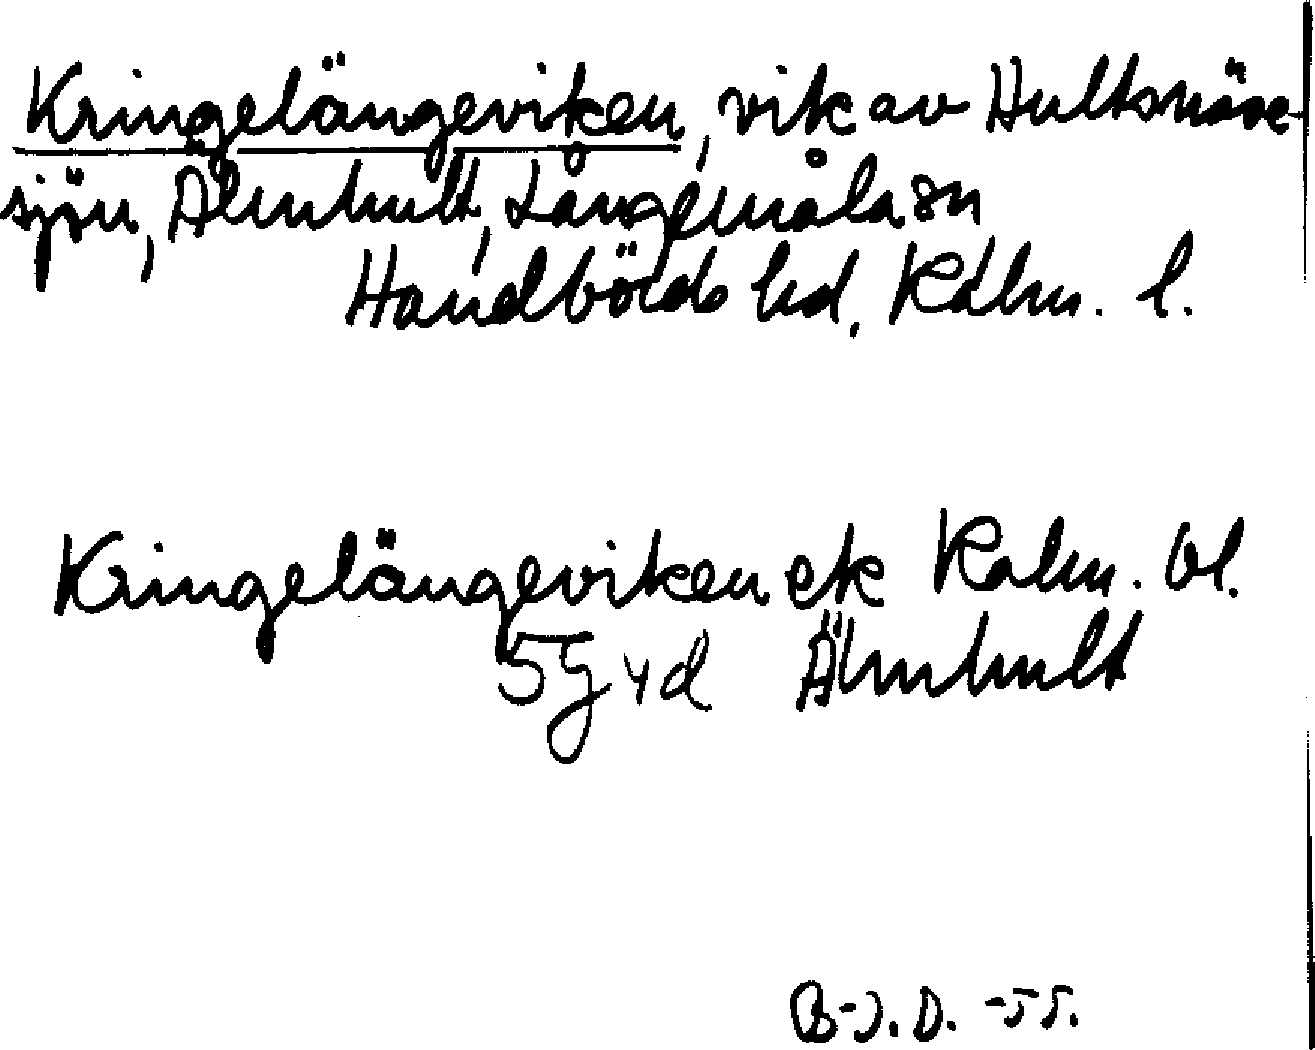 Kringelängeviken, vik av Hultsnäse-
sjön, Älmhult, Långemåla sn
Handbörds hd, Kalm. l.
Kringelängeviken ek Kalm. bl.
5G yd Älmhult
B-J. D. -55.